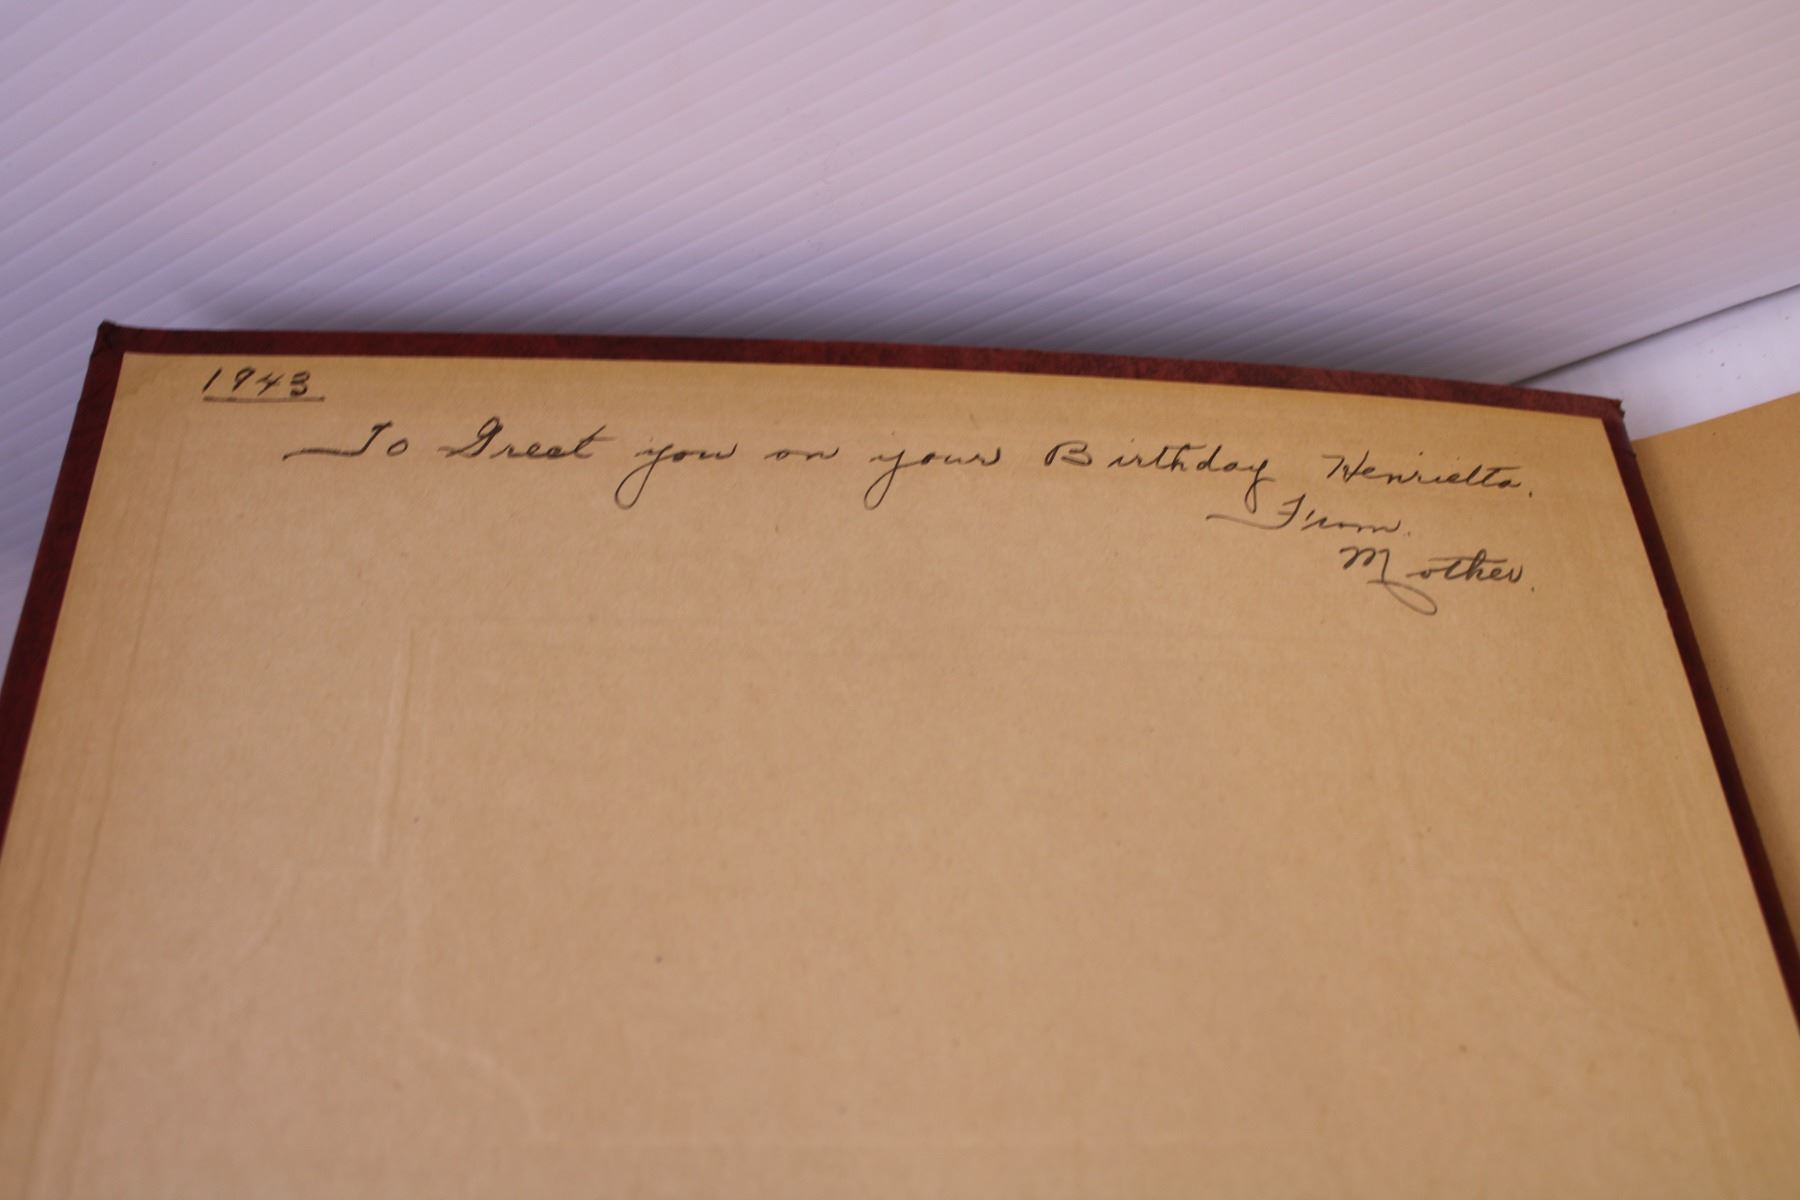 1943
To Greet you on your Birthday Henrietta.
From.
Mother.